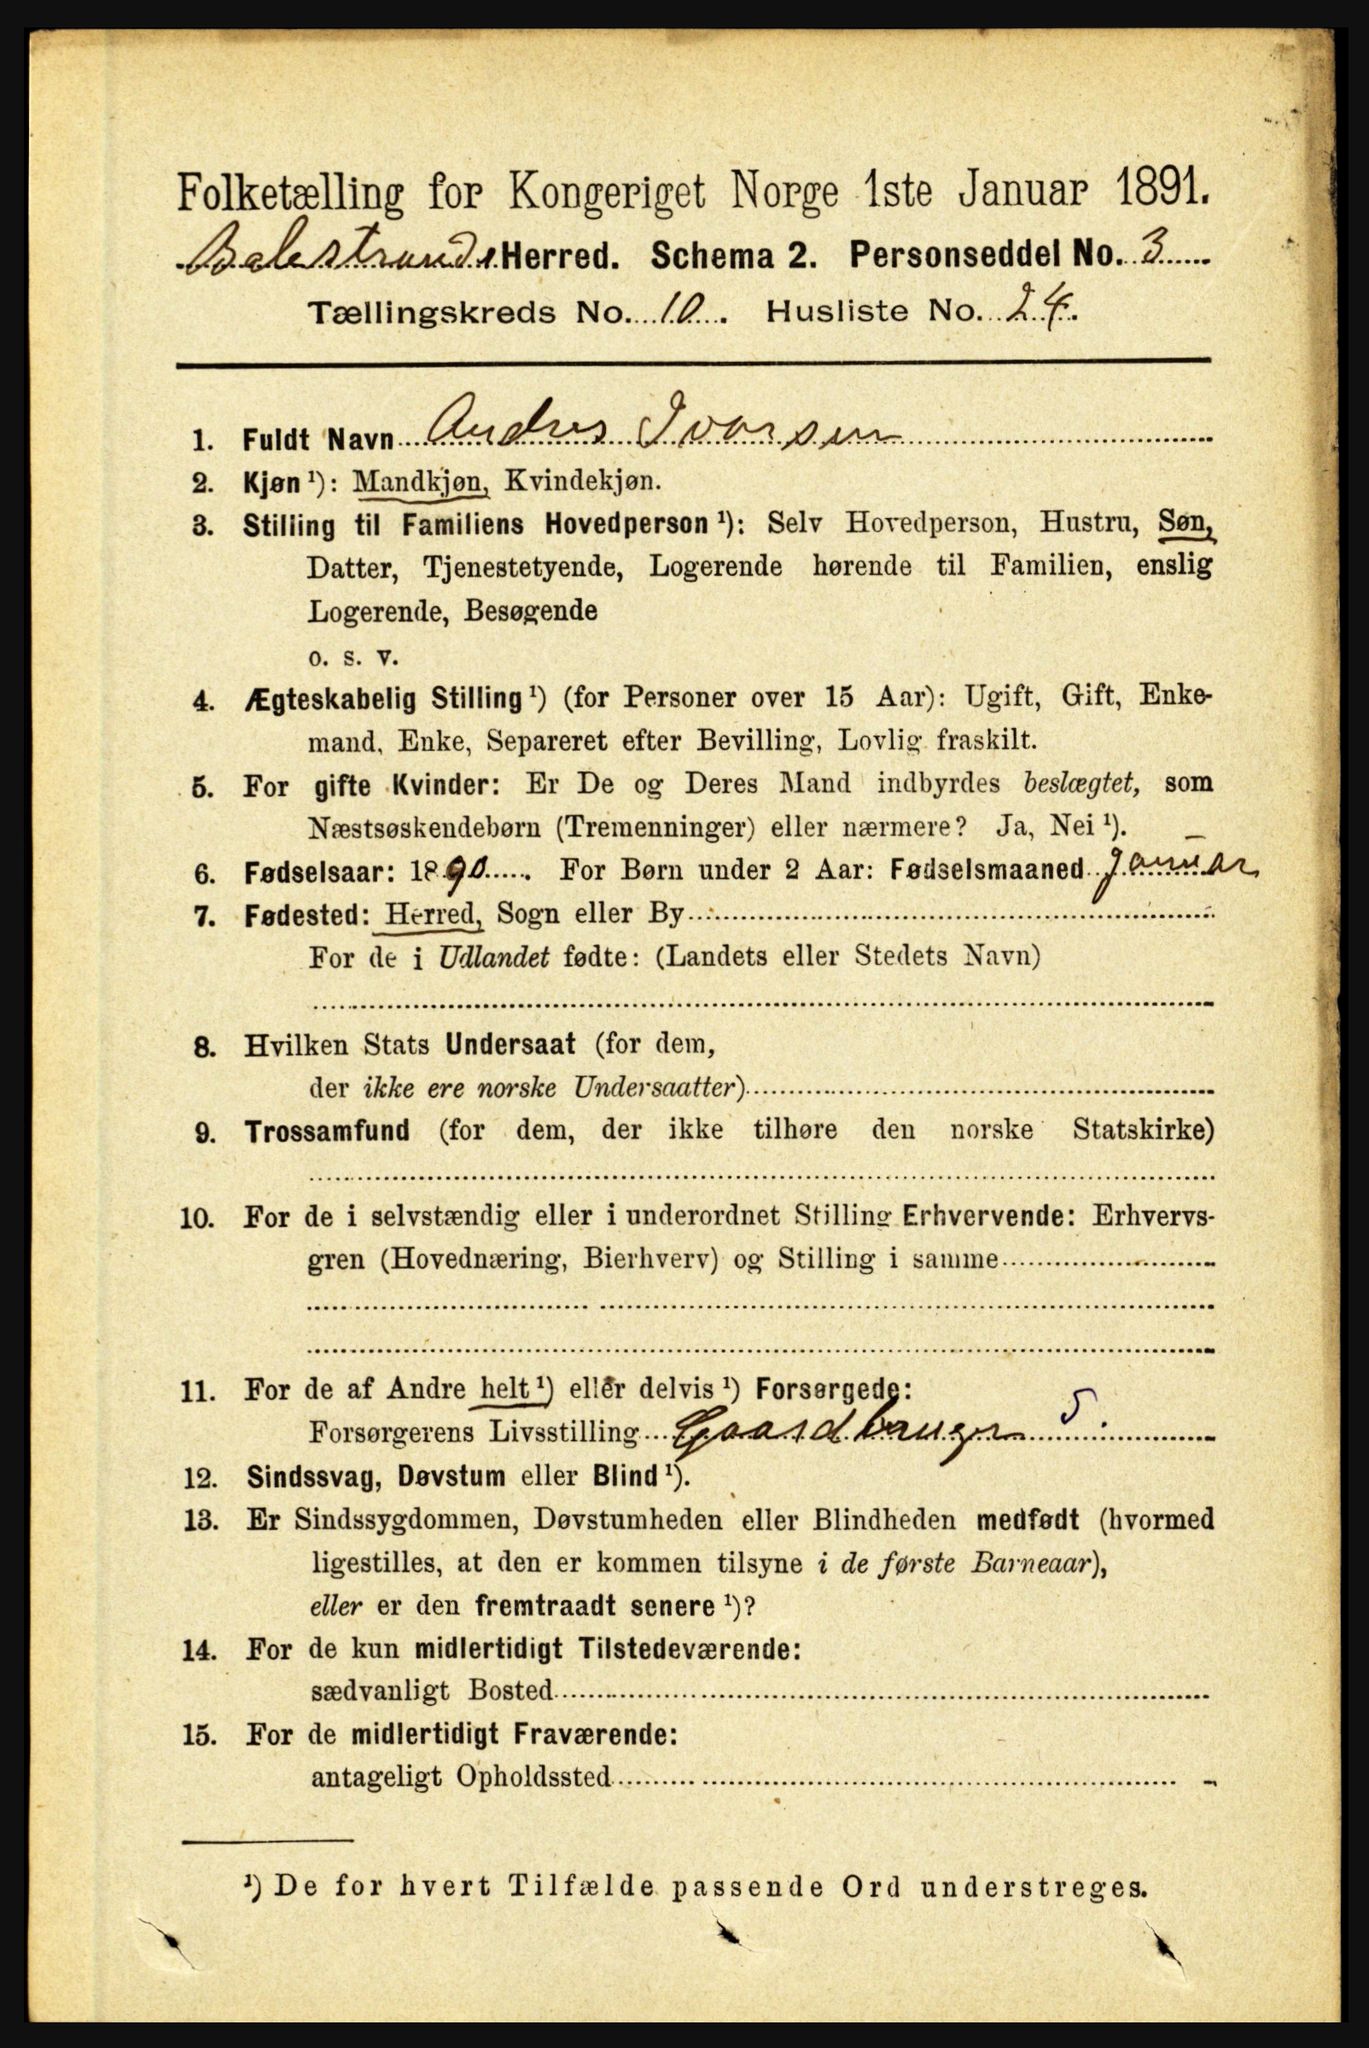 Folketælling for Kongeriget Norge 1ste Januar 1891.
Balestrands Herred. Schema 2. Personseddel No. 3
Tællingskreds No. 10. Husliste No. 24.
1. Fuldt Navn Andres Ivarsen
2. Kjøn ¹): Mandkjøn, Kvindekjøn.
3. Stilling til Familiens Hovedperson ¹): Selv Hovedperson, Hustru, Søn,
Datter, Tjenestetyende, Logerende hørende til Familien, enslig
Logerende, Besøgende
o. s. v.
4. Ægteskabelig Stilling ¹) (for Personer over 15 Aar): Ugift, Gift, Enke-
mand, Enke, Separeret efter Bevilling, Lovlig fraskilt.
5. For gifte Kvinder: Er De og Deres Mand indbyrdes beslægtet, som
Næstsøskendebørn (Tremenninger) eller nærmere? Ja, Nei ¹).
6. Fødselsaar: 1890. For Børn under 2 Aar: Fødselsmaaned Januar
7. Fødested: Herred, Sogn eller By
For de i Udlandet fødte: (Landets eller Stedets Navn)
8. Hvilken Stats Undersaat (for dem,
der ikke ere norske Undersaatter)
9. Trossamfund (for dem, der ikke tilhøre den norske Statskirke)
10. For de i selvstændig eller i underordnet Stilling Erhvervende: Erhvervs-
gren (Hovednæring, Bierhverv) og Stilling i samme
11. For de af Andre helt ¹) eller delvis ¹) Forsørgede:
Forsørgerens Livsstilling Gaardbruger 5.
12. Sindssvag, Døvstum eller Blind ¹).
13. Er Sindssygdommen, Døvstumheden eller Blindheden medfødt (hvormed
ligestilles, at den er kommen tilsyne i de første Barneaar),
eller er den fremtraadt senere ¹)?
14. For de kun midlertidigt Tilstedeværende:
sædvanligt Bosted
15. For de midlertidigt Fraværende:
antageligt Opholdssted
¹) De for hvert Tilfælde passende Ord understreges.